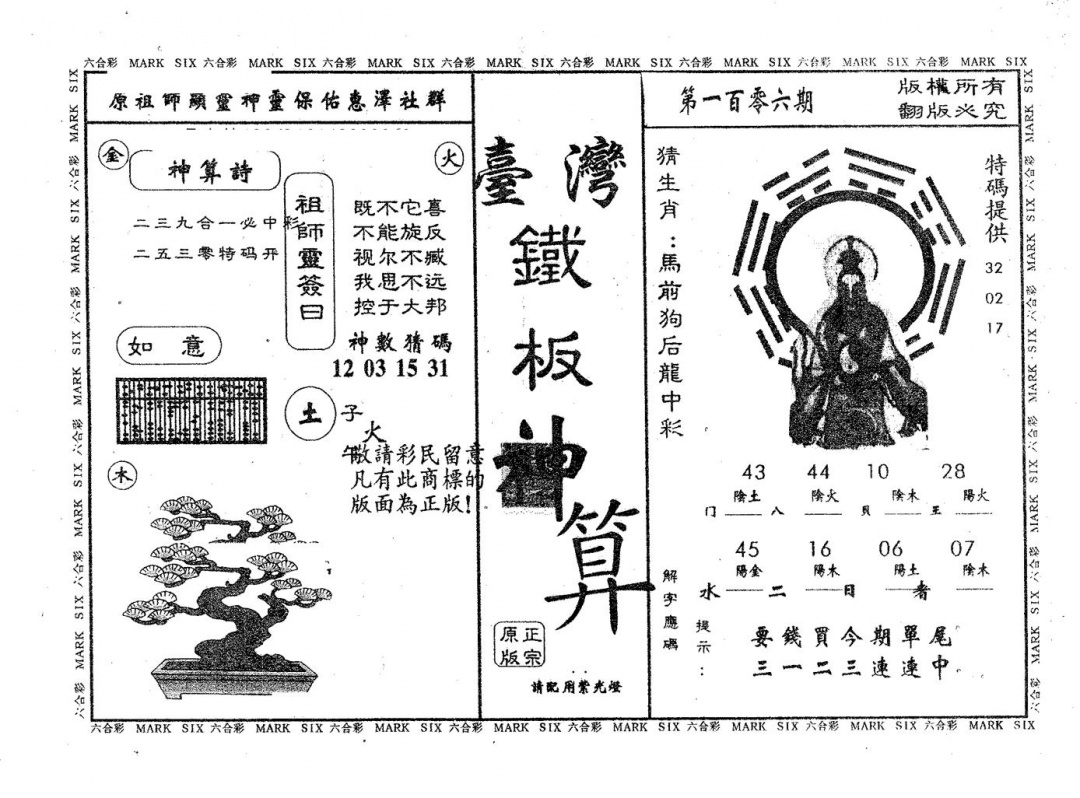 六合彩 MARK SIX 六合彩 MARK SIX 六合彩 MARK SIX 六合彩 MARK SIX 六合彩 MARK SIX 六合彩 MARK SIX 六合彩 MARK SIX 六合彩 MARK SIX
原祖師顯靈神靈保佑惠澤社群
金
神算詩
火
二三九合一必中彩
二五三零特码开
祖師靈簽曰
既不它喜
不能旋反
视尔不臧
我思不远
控于大邦
神數猜碼
12 03 15 31
如意
土
子
火
午
敬請彩民留意
凡有此商標的
版面為正版!
木
臺灣
鐵板神算
正宗
原版
請配用紫光燈
第一百零六期
版權所有
翻版必究
猜生肖：馬前狗后龍中彩
特碼提供
32
02
17
43 44 10 28
陰土 陰火 陰木 陽火
门 八 貝 王
45 16 06 07
陽金 陽木 陽土 陰木
水 二 日 者
解字應碼
提示：
要錢買今期單尾
三一二三連連中。
六合彩 MARK SIX 六合彩 MARK SIX 六合彩 MARK SIX 六合彩 MARK SIX 六合彩 MARK SIX 六合彩 MARK SIX 六合彩 MARK SIX 六合彩 MARK SIX